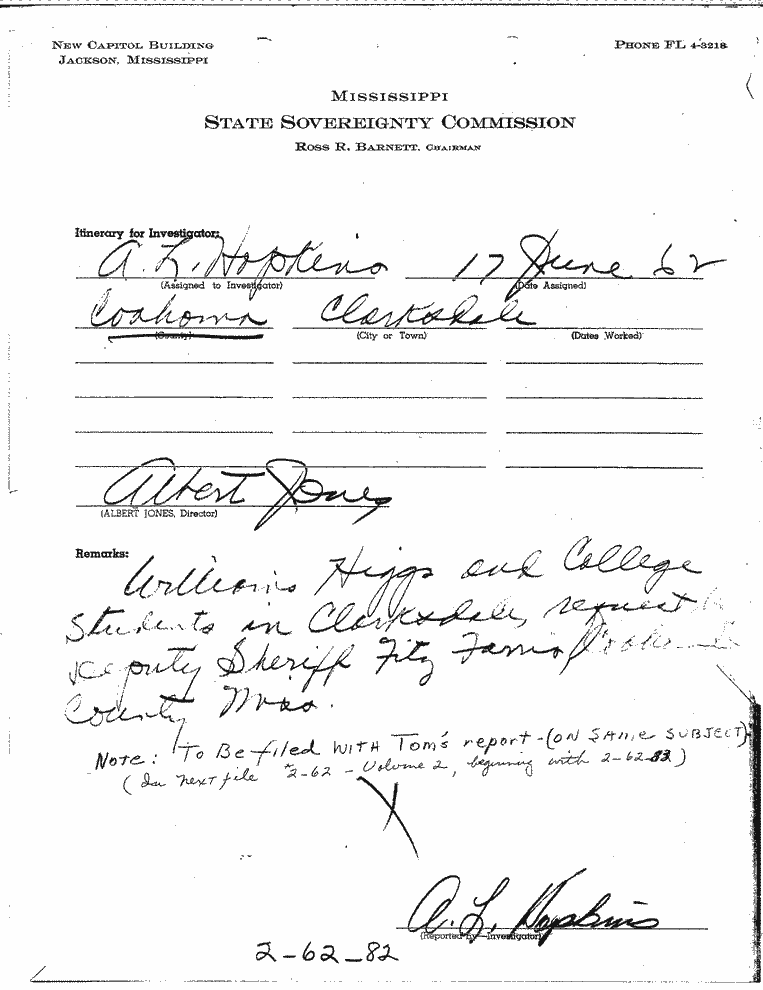 NEW CAPITOL BUILDING
JACKSON, MISSISSIPPI
PHONE FL 4-3218
MISSISSIPPI
STATE SOVEREIGNTY COMMISSION
ROSS R. BARNETT, CHAIRMAN
Itinerary for Investigator:
A. L. Hopkins 17 June 62
(Assigned to Investigator) (Date Assigned)
Coahoma Clarksdale
(County) (City or Town) (Dates Worked)
Albert Jones
(ALBERT JONES, Director)
Remarks:
Williams Higgs and College
Students in Clarksdale, request
Deputy Sheriff Fitz Farris
County Miss.
Note: To Be filed WITH Tom's report - (ON SAME SUBJECT)
(In next file #2-62 - Volume 2, beginning with 2-62-83)
A. L. Hopkins
(Reported by—Investigator)
2-62-82